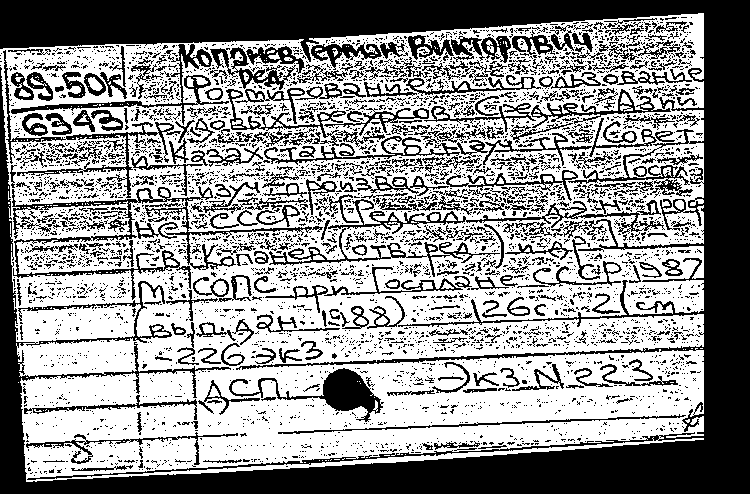 Копанев, Герман Викторович
ред.
89-50К Формирование и использование
6343 трудовых ресурсов Средней Азии
и Казахстана: Сб. науч. тр. / Совет
по изуч. производ. сил при Госпла-
не СССР; [Редкол.: ... д.э.н., проф.
Г.В. Копанев (отв. ред.) и др.]. -
М.: СОПС при Госплане СССР, 1987
(вып. дан. 1988). - 126 с.; 21 см.
. - 226 экз.
ДСП. - Экз. N 223.
8